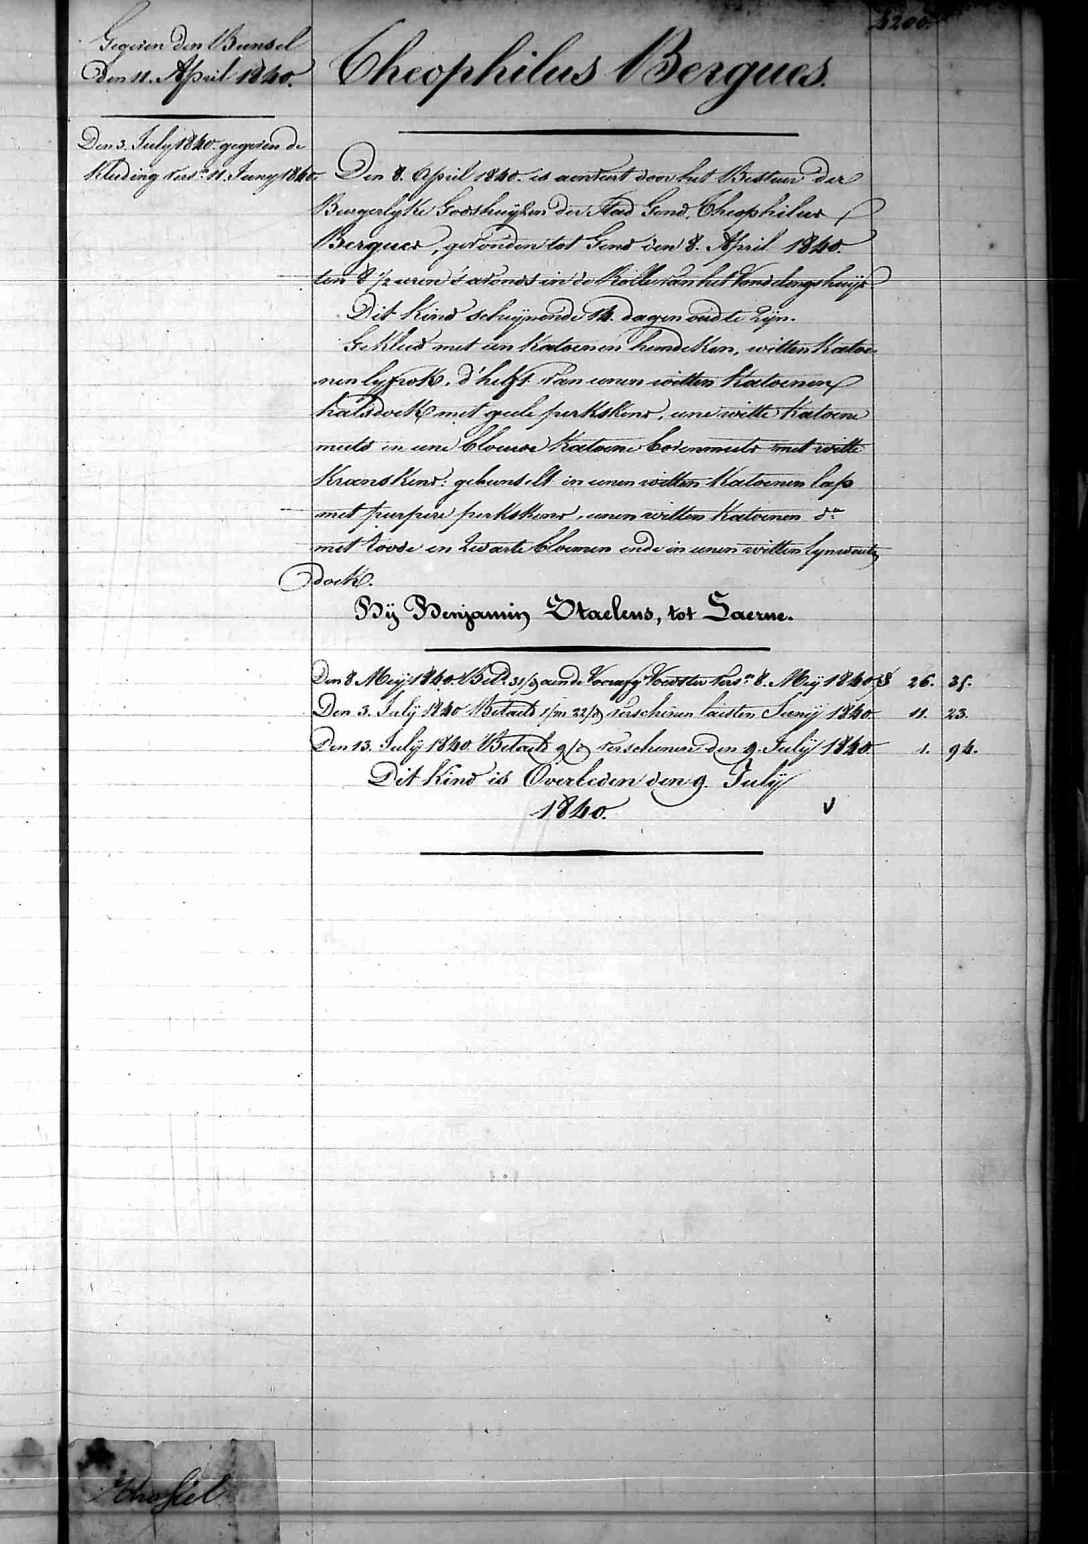 4200.
Gegeven den Bunsel
Den 11. April 1840.
Den 3. July 1840. gegeven de
Kleeding vers.n 11. Juny 1840.
Theophilus Bergues.
Den 8. April 1840. is aenveirt door het Bestuer der
Burgerlyke Godshuyzen der Stad Gend, Theophilus
Bergues, gevonden tot Gend den 8. April 1840.
ten 8 1/2 uren 's avonds in de Rolle van het Vondelingshuys
Dit Kind schynende 14. dagen oud te zyn.
Gekleed met een Katoenen hemdeken, witten Katoe-
nen lyfrok, d'helft van eenen witten Katoenen
halsdoek met geele perkskens, eene witte Katoene
muts en eene blouwe Katoene bovenmuts met witte
Kranskens: gebunselt in eenen witten Katoenen lap
met purpere perkskens, eenen witten Katoenen d.o
met roode en zwarte bloemen ende in eenen witten lynwaeten
doek.
Bÿ Benjamin Staelens, tot Laerne.
Den 8 Meÿ 1840. Bet.d 31/d aen de Voorafg.e Voedster vers.n 8. Meÿ 1840. 26. 35.
Den 3. Julÿ 1840 Betaeld 1/m 22/d verschenen laesten Junÿ 1840. 11. 23.
Den 13. Julÿ 1840. Betaeld 9/d verschenen den 9. Julÿ 1840. 1. 94.
Dit Kind is Overleden den 9. Julÿ
1840. v